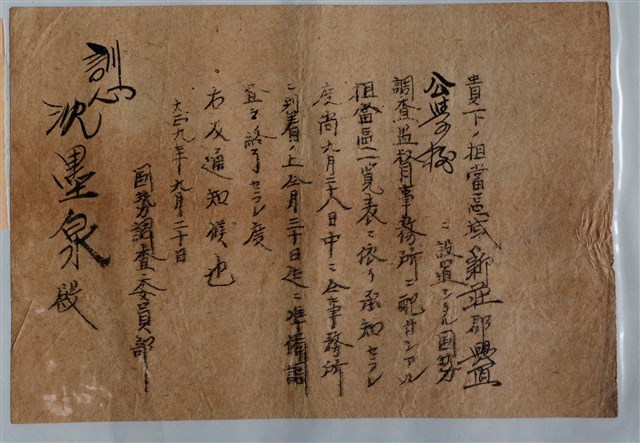 貴下ノ担當區域新莊郡興直
公学校ニ設置シタル国勢
調査監督事務所ニ配付シアル
担當區一覧表ニ依リ承知セラレ
度尚九月二十八日中ニ仝事務所
ニ到着ノ上仝月三十日迄ニ準備調
査ヲ終了セラレ度
右及通知候也
大正九年九月二十日
国勢調査委員部
沈墨泉殿